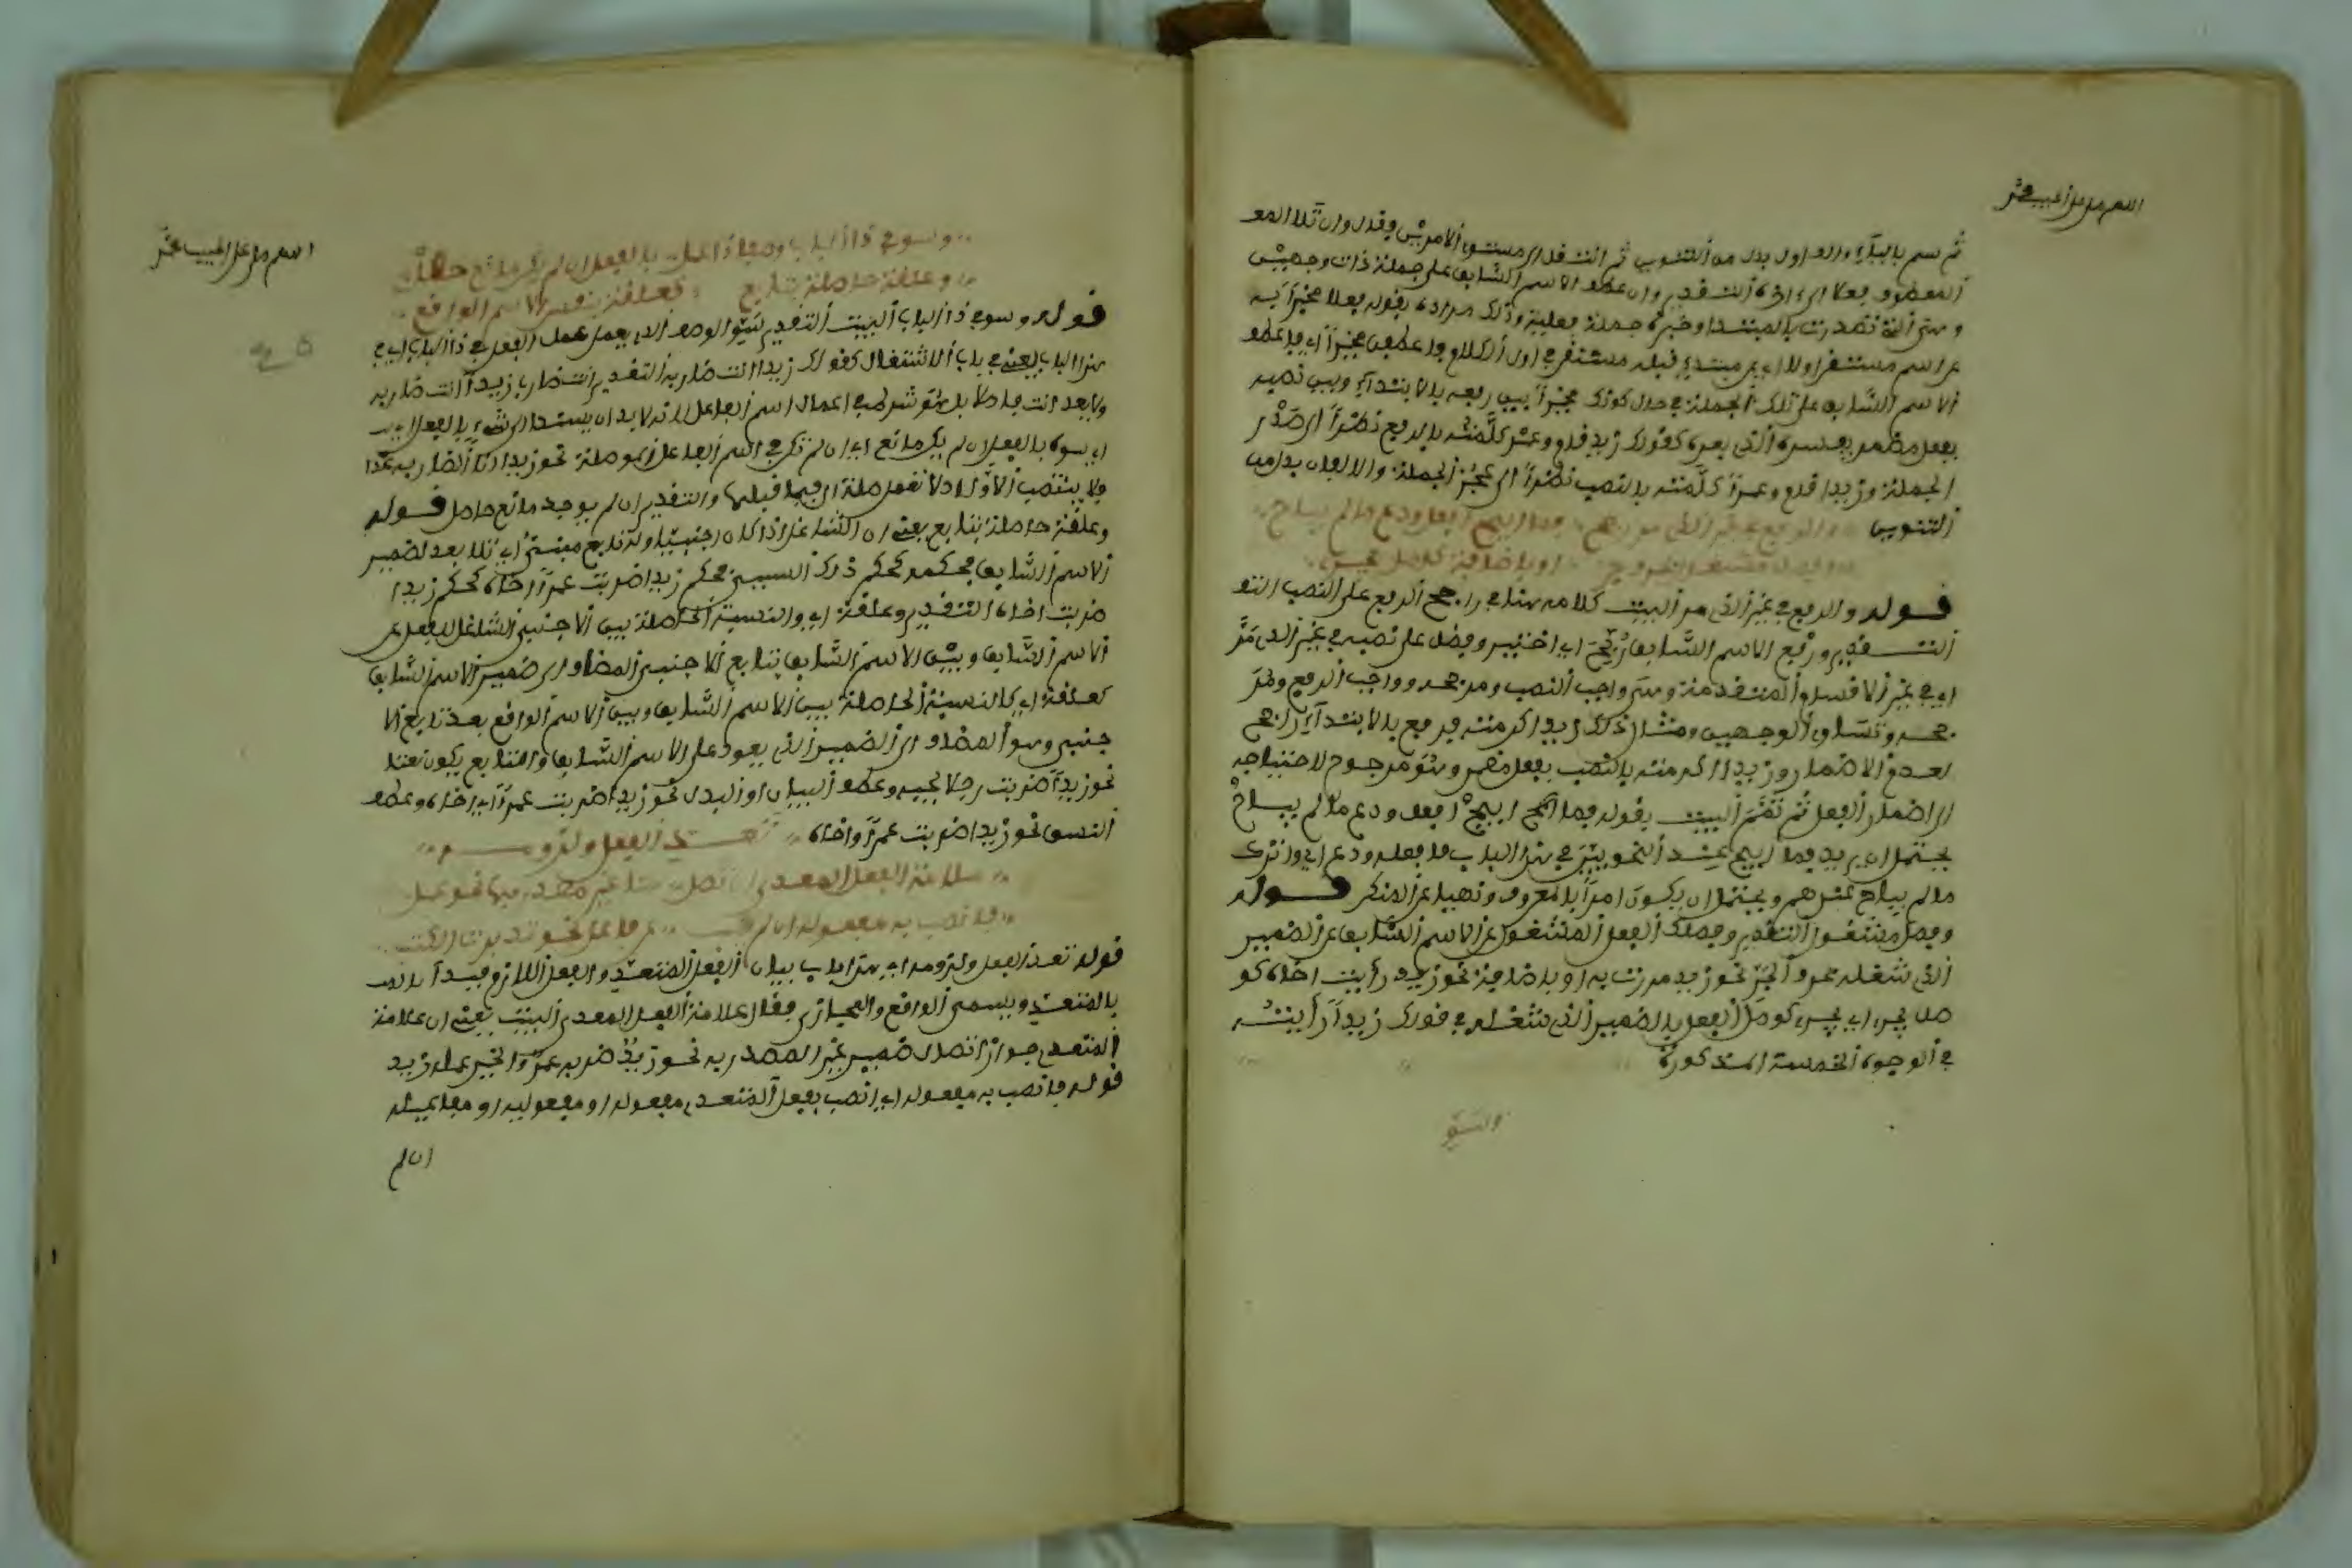 اللهم صل على الحبيب محمد
ثم سم بالباء والواو بدل من التنوين ثم انتقل الى مستوى الامرين وقال وان تلا المع
المعطوف فعلا الى اخره التقدير وان عطف الاسم السابق على جملة ذات وجهين
وهي التي تصدرت بالمبتدا وخبره جملة فعلية وذلك مراده بقوله فعلا مخبرا به
عن اسم مستقر اولا اي عن مبتدإ قبله مستقر في اول الكلام فاعطفن مخبرا اي فاعطف
الاسم السابق على تلك الجملة في حال كونك مخبرا بين رفعه بالابتداء وبين نصبه
بفعل مضمر يفسره الذي بعده كقولك زيد قام وعمر كلمته بالرفع نظرا الى صدر
الجملة وزيد قام وعمرا كلمته بالنصب نظرا الى عجز الجملة والالف بدل من
التنوين والرفع في غير الذي مر رجح فما ابيح افعل ودع ما لم يبح
وفصل مشغول بحرف جر او باضافة كوصل يجري
قوله والرفع في غير الذي مر البيت كلامه هنا في راجح الرفع على النصب
التقدير ورفع الاسم السابق رجح اي اختير وفضل على نصبه في غير الذي مر
اي في غير الاقسام المتقدمة وهي واجب النصب ومرجحه وواجب الرفع
وتساوي الوجهين ومثال ذلك زيد اكرمته فرفع بالابتداء راجح
لعدم الاضمار وزيدا اكرمته بالنصب بفعل مضمر وهو مرجوح لاحتياجه
الى اضمار الفعل ثم تمم البيت بقوله فما ابيح افعل ودع ما لم يبح
يحتمل ان يريد فما ابيح عند النحويين في هذا الباب فافعله ودع اي واترك
ما لم يبح عندهم ويحتمل ان يكون امرا بالمعروف ونهيا عن المنكر قوله
وفصل مشغول التقدير وفصلك الفعل المشغول عن الاسم السابق عن الضمير
الذي شغله بحرف الجر نحو زيد مررت به او باضافة نحو زيد رأيت اخاه كو
صل يجري اي يجري كوصل الفعل بالضمير الذي شغله في قولك زيدا رأيته
في الوجوه الخمسة المذكورة
وسو
اللهم صل على الحبيب محمد
وسو في ذا الباب وصفا ذا عمل بالفعل ان لم يك مانع حصل
وعلقة حاصلة بتابع كعلقة بنفس الاسم الواقع
قوله وسو في ذا الباب البيت التقدير سو الوصف الذي يعمل عمل الفعل في ذا الباب اي في
هذا الباب يعني في باب الاشتغال كقولك زيدا انت ضاربه التقدير انت ضارب زيدا انت ضاربه
اي سوه بالفعل ان لم يك مانع اي ان لم تكن في اسم الفاعل الموصلة نحو زيد انا الضاربه غدا
فلا ينتصب الاول اذ لا تعمل صلة ال فيما قبلها والتقدير ان لم يوجد مانع حاصل قوله
وعلقة حاصلة بتابع يعني ان الشاغل اذا كان اجنبيا وله تابع
الاسم السابق فحكمه كحكم ذلك السببي فحكم زيدا ضربت عمرا اخاه كحكم زيدا
ضربت اخاه التقدير وعلقة اي والنسبة الحاصلة بين الاجنبي الشاغل للفعل عن
الاسم السابق وبين الاسم السابق بتابع الاجنبي المضاف الى ضمير الاسم السابق
كعلقة اي كالنسبة الحاصلة بين الاسم السابق وبين الاسم الواقع بعد تابع الا
جنبي وهو المضاف الى الضمير الذي يعود على الاسم السابق والتابع يكون نعتا
نحو زيدا ضربت رجلا يحبه وعطف البيان او البدل نحو زيدا ضربت عمرا اخاه وعطف
النسق نحو زيدا ضربت عمرا واخاه تعدي الفعل ولزومه
علامة الفعل المعدى ان تصل ها غير مصدر به نحو عمل
فانصب به مفعوله ان لم ينب عن فاعل نحو تدبرت الكتب
قوله تعدي الفعل ولزومه اي هذا باب بيان الفعل المتعدي والفعل اللازم فبدأ
بالمتعدي ويسمى الواقع والمجاوز فقال علامة الفعل المعدى البيت يعني ان علامة
المتعدي جواز اتصال ضمير غير المصدر به نحو زيد ضربه عمرو والخير عمله زيد
قوله فانصب به مفعوله اي انصب بفعل المتعدي مفعوله او مفعوليه او مفاعيله
ان لم